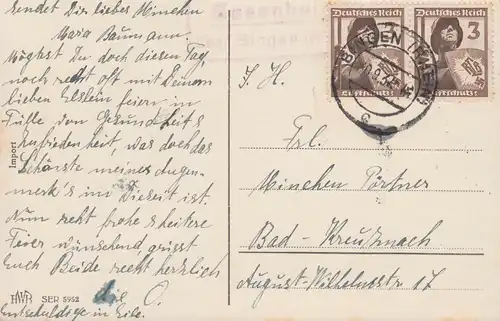 sendet Dir liebes Minchen
Maria Baumann.
Mögest Du doch diesen Tag
noch recht oft mit Deinem
lieben Elslein feiern in
Fülle von Gesundheit &
Zufriedenheit, was doch das
Schönste meines Augen-
merk's im Dieseit ist.
Nun recht frohe & heitere
Feier wünschend, grüsst
Euch Beide recht herzlich
die O.
Entschuldige in Eile.
Import
HWR SER 5952
Deutsches Reich
Deutsches Reich
3
Luftschutz
Luftschutz
BINGEN (RHEIN)
S. H.
Frl.
Minchen Pörtner
Bad-Kreuznach
August-Wilhelmstr 17